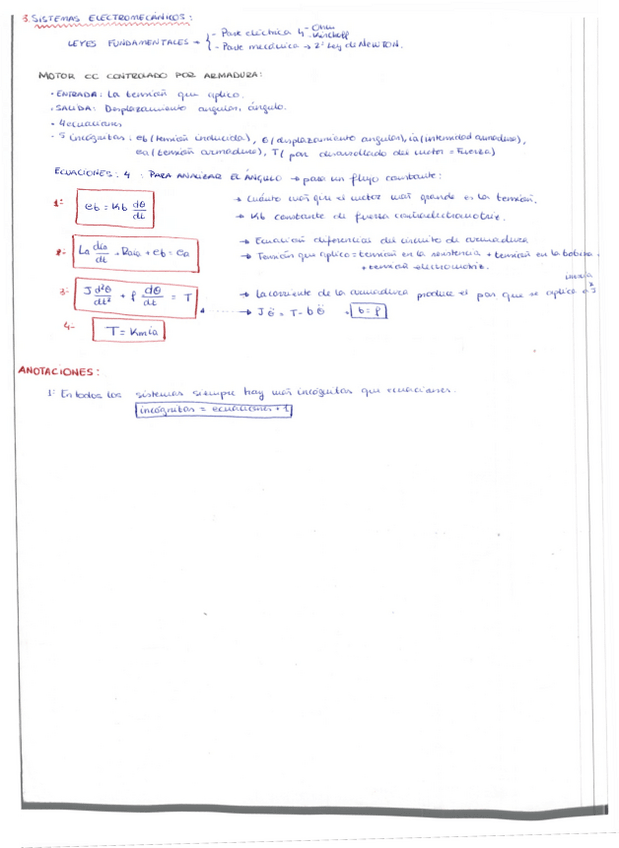 3. SISTEMAS ELECTROMECÁNICOS:
LEYES FUNDAMENTALES → { - Parte eléctrica ↳ - Ohm - Kirchoff
- Parte mecánica → 2ª Ley de NEWTON.
MOTOR CC CONTROLADO POR ARMADURA:
• ENTRADA: La tensión que aplico.
• SALIDA: Desplazamiento angular, ángulo.
• 4 ecuaciones
• 5 incógnitas: eb (tensión inducida), θ (desplazamiento angular), ia (intensidad armadura),
ea (tensión armadura), T (par desarrollado del motor = Fuerza)
ECUACIONES: 4 : PARA ANALIZAR EL ÁNGULO → para un flujo constante:
1ª eb = Kb dθ/dt → Cuánto más gire el motor más grande es la tensión.
→ Kb constante de fuerza contraelectromotriz.
2- La dia/dt + Raia + eb = ea → Ecuación diferencial del circuito de armadura
→ Tensión que aplico = tensión en la resistencia + tensión en la bobina
+ tensión electromotriz.
3- J d²θ/dt² + ρ dθ/dt = T → La corriente de la armadura produce el par que se aplica a
inercia J
→ J θ̈ = T - b θ̈ b = ρ
4- T = Kmia
ANOTACIONES:
1: En todos los sistemas siempre hay más incógnitas que ecuaciones.
incógnitas = ecuaciones + 1